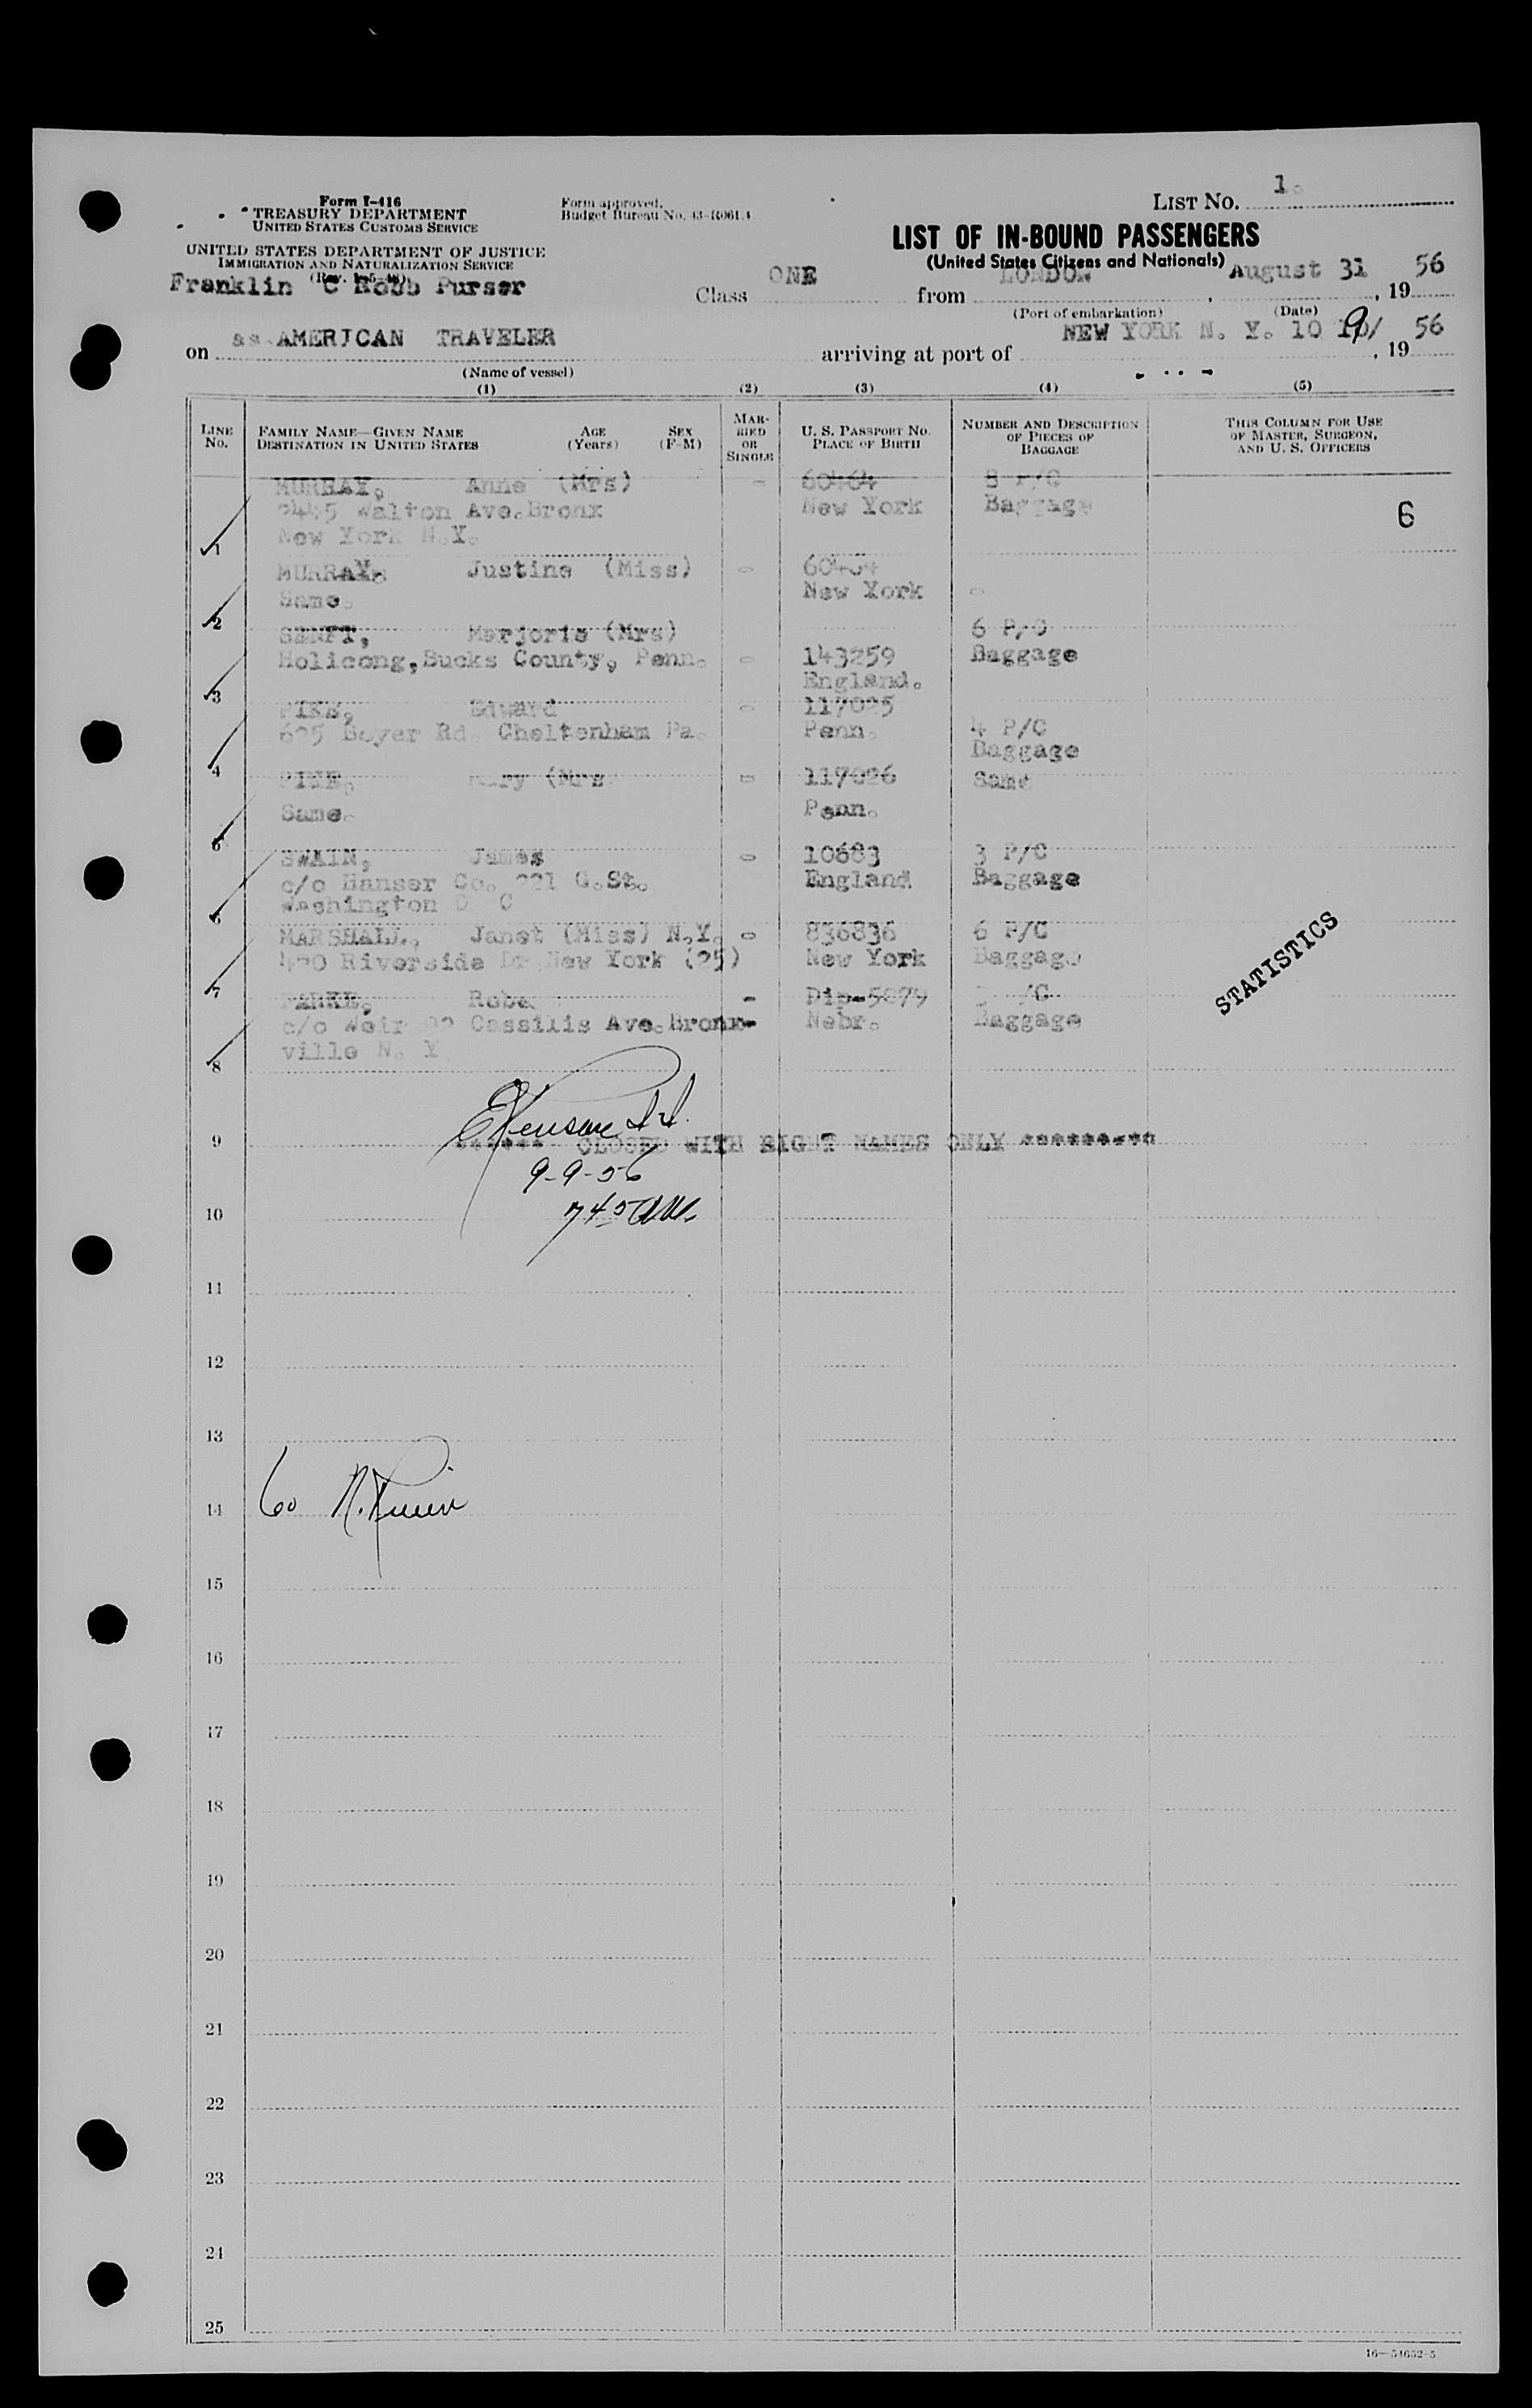 LIST No. 1.
Form I-416
TREASURY DEPARTMENT
UNITED STATES CUSTOMS SERVICE
Form approved.
Budget Bureau No. 43-R061.4
UNITED STATES DEPARTMENT OF JUSTICE
IMMIGRATION AND NATURALIZATION SERVICE
LIST OF IN-BOUND PASSENGERS
(United States Citizens and Nationals)
Franklin C Robb Purser
Class ONE from LONDON, August 31, 19 56
(Port of embarkation) (Date)
on ss AMERICAN TRAVELER arriving at port of NEW YORK N. Y. 9/, 19 56
(Name of vessel)
(1) (2) (3) (4) (5)
LINE No. FAMILY NAME—GIVEN NAME DESTINATION IN UNITED STATES AGE (Years) SEX (F-M) MARRIED OR SINGLE U. S. PASSPORT NO. PLACE OF BIRTH NUMBER AND DESCRIPTION OF PIECES OF BAGGAGE THIS COLUMN FOR USE OF MASTER, SURGEON, AND U. S. OFFICERS
MURRAY, Anne (Mrs) - 60464 8 P/C
Walton Ave. Bronx New York Baggage 6
1 New York N.Y.
MURRAY, Justine (Miss) - 60464
2 Same. New York -
SENFT, Marjorie (Mrs) 6 P/C
Holicong, Bucks County, Penn. - 143259 Baggage
3 England.
Edward - 117025
625 Boyer Rd. Cheltenham Pa. Penn. 4 P/C
4 Baggage
Mary (Mrs - 117026 Same
5 Same. Penn.
SWAIN, James - 10683 3 P/C
c/o Hanser Co. 221 G.St. England Baggage
6 Washington D C
MARSHALL, Janet (Miss) N.Y. - 836836 6 P/C
7 420 Riverside Dr New York (25) New York Baggage
- Dip-5079 /C
c/o Weir Cassilis Ave. Bronx- Nebr. Baggage
8 ville N. Y.
STATISTICS
9 CLOSED WITH EIGHT NAMES ONLY *********
9-9-56
745 AM.
10
11
12
13
14 60
15
16
17
18
19
20
21
22
23
24
25
16—54652-5